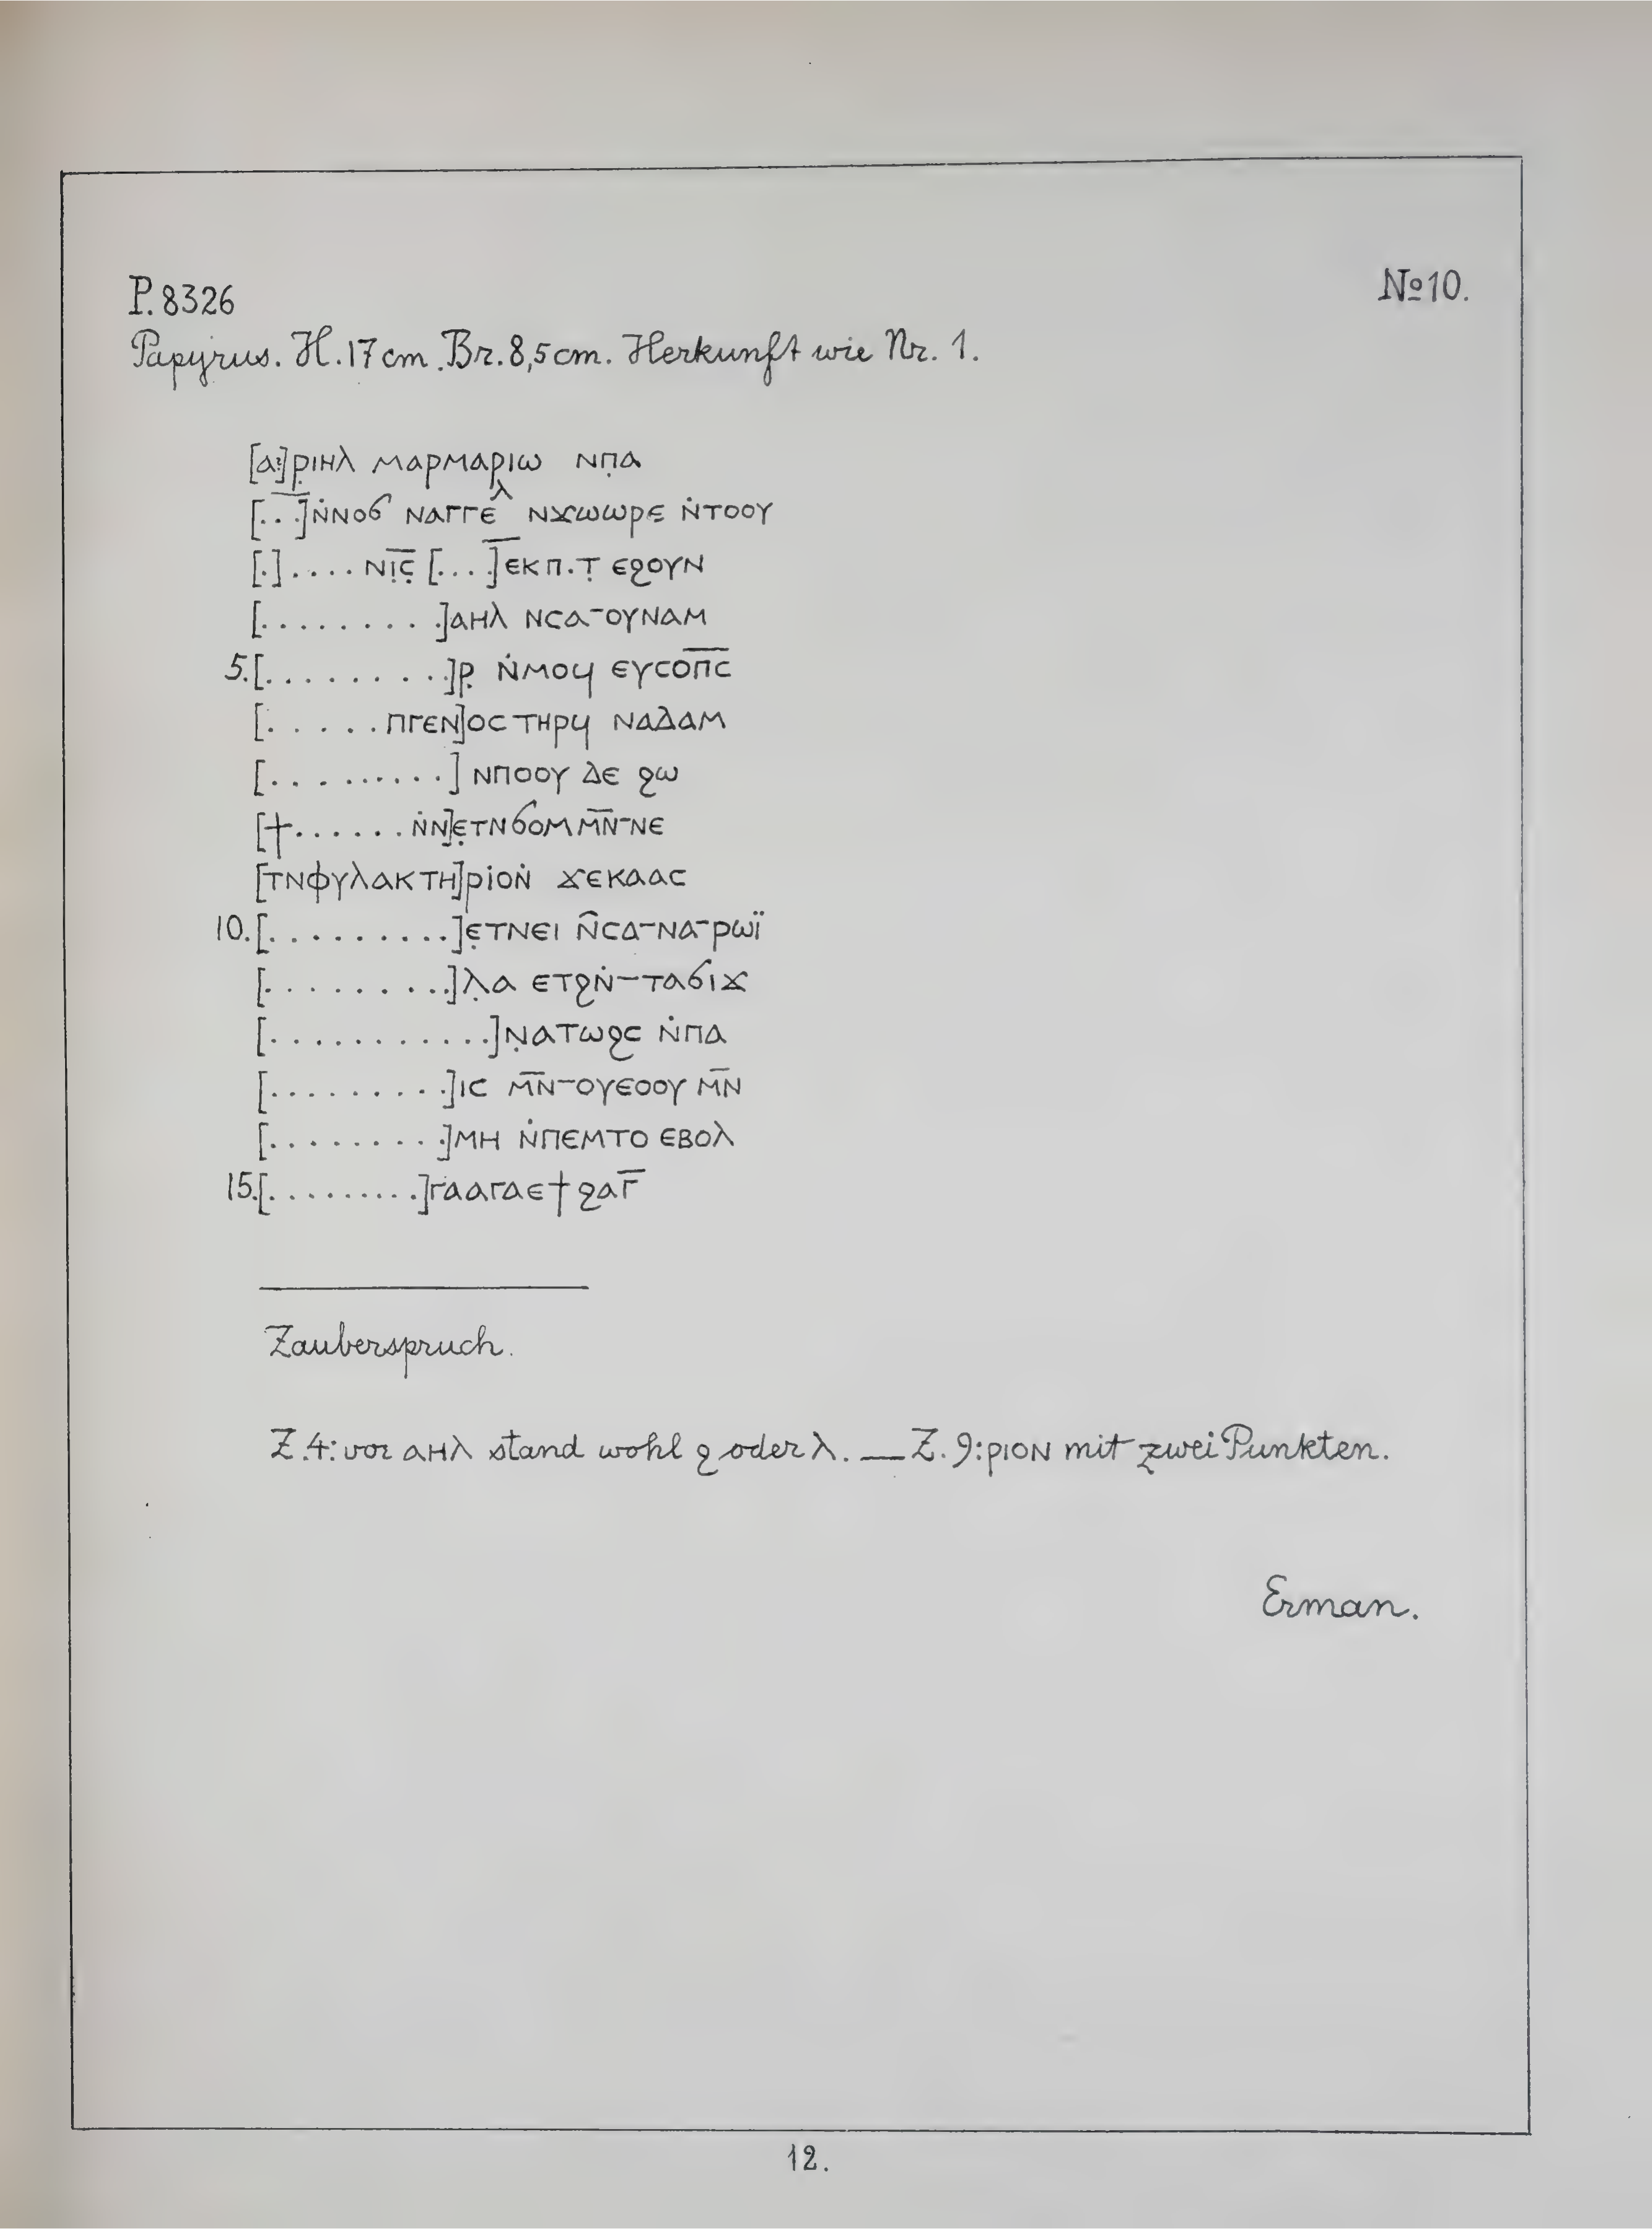 P. 8326
№ 10.
Papyrus. H. 17 cm. Br. 8,5 cm. Herkunft wie Nr. 1.
[ⲁ?]ⲣ̣ⲓⲏⲗ ⲙⲁⲣⲙⲁⲣⲓⲱ ⲛⲡ̣ⲁ
[. . .̅]ⲛ̇ⲛⲟϭ ⲛⲁⲅⲅⲉˋⲗˊ ⲛϫⲱⲱⲣⲉ ⲛ̇ⲧⲟⲟⲩ
[.] . . . . ⲛⲓ̣̅ⲥ̣̅ [. . . .̅]ⲉ̣ⲕⲡ.ⲧ̣ ⲉϩⲟⲩⲛ
[. . . . . . . . .]ⲁⲏⲗ ⲛⲥⲁ-ⲟⲩⲛⲁⲙ
5. [. . . . . . . . . .]ⲣ̣ ⲛ̇ⲙⲟϥ ⲉⲩⲥⲟ̅ⲡ̅ⲥ̅
[. . . . . . ⲡⲅⲉⲛ]ⲟⲥ ⲧⲏⲣϥ ⲛⲁⲇⲁⲙ
[. . . . . . . . . .] ⲛⲡⲟⲟⲩ ⲇⲉ ϩⲱ
[ϯ . . . . . . ⲛ̇ⲛ]ⲉ̣ⲧⲛϭⲟⲙ ⲙ̅ⲛ̅-ⲛⲉ
[ⲧⲛⲫⲩⲗⲁⲕⲧⲏ]ⲣⲓ̇ⲟⲛ̇ ϫⲉⲕⲁⲁⲥ
10. [. . . . . . . . . .]ⲉ̣ⲧⲛⲉⲓ ⲛ̂ⲥⲁ-ⲛⲁ-ⲣⲱⲓ̈
[. . . . . . . . . . .]ⲗ̣ⲁ ⲉⲧϩⲛ̇-ⲧⲁϭⲓϫ
[. . . . . . . . . . . .]ⲛ̣ⲁⲧⲱϩⲥ ⲛ̇ⲡⲁ
[. . . . . . . . . .]ⲓⲥ ⲙ̅ⲛ̅-ⲟⲩⲉⲟⲟⲩ ⲙ̅ⲛ̅
[. . . . . . . . . .]ⲙⲏ ⲛ̇ⲡⲉⲙⲧⲟ ⲉⲃⲟⲗ
15. [. . . . . . . . . .]ⲅⲁⲁⲅⲁⲉϯ ϩⲁⲅ̅
Zauberspruch.
Z. 4: vor ⲁⲏⲗ stand wohl ϩ oder ⲗ. — Z. 9: ⲣⲓⲟⲛ mit zwei Punkten.
Erman.
12.